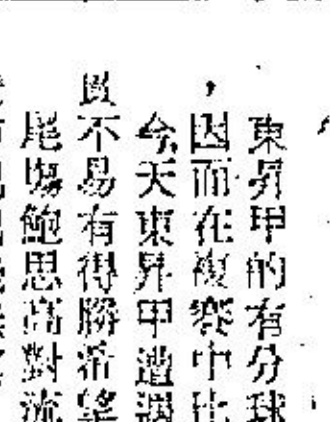 東昇甲的有分球
，因而在複賽中比
今天東昇甲遭遇
不易有得勝希望
尾場鮑思高對流